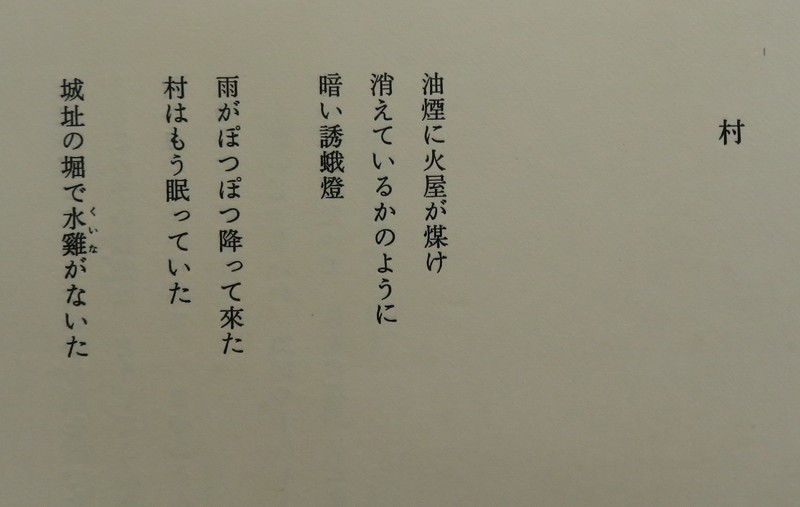 村
油煙に火屋が煤け
消えているかのように
暗い誘蛾燈
雨がぽつぽつ降って來た
村はもう眠っていた
城址の堀で水雞がないた
くいな